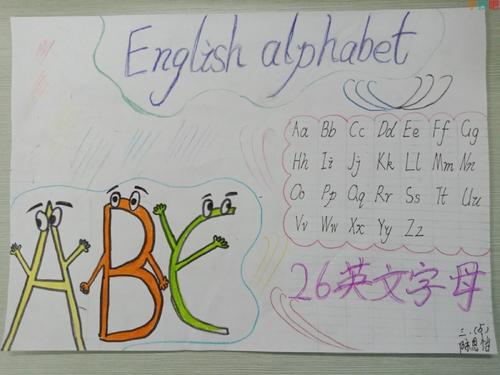 English alphabet
Aa Bb Cc Dd Ee Ff Gg
Hh Ii Jj Kk Ll Mm Nn
Oo Pp Qq Rr Ss Tt Uu
Vv Ww Xx Yy Zz
ABC
26英文字母